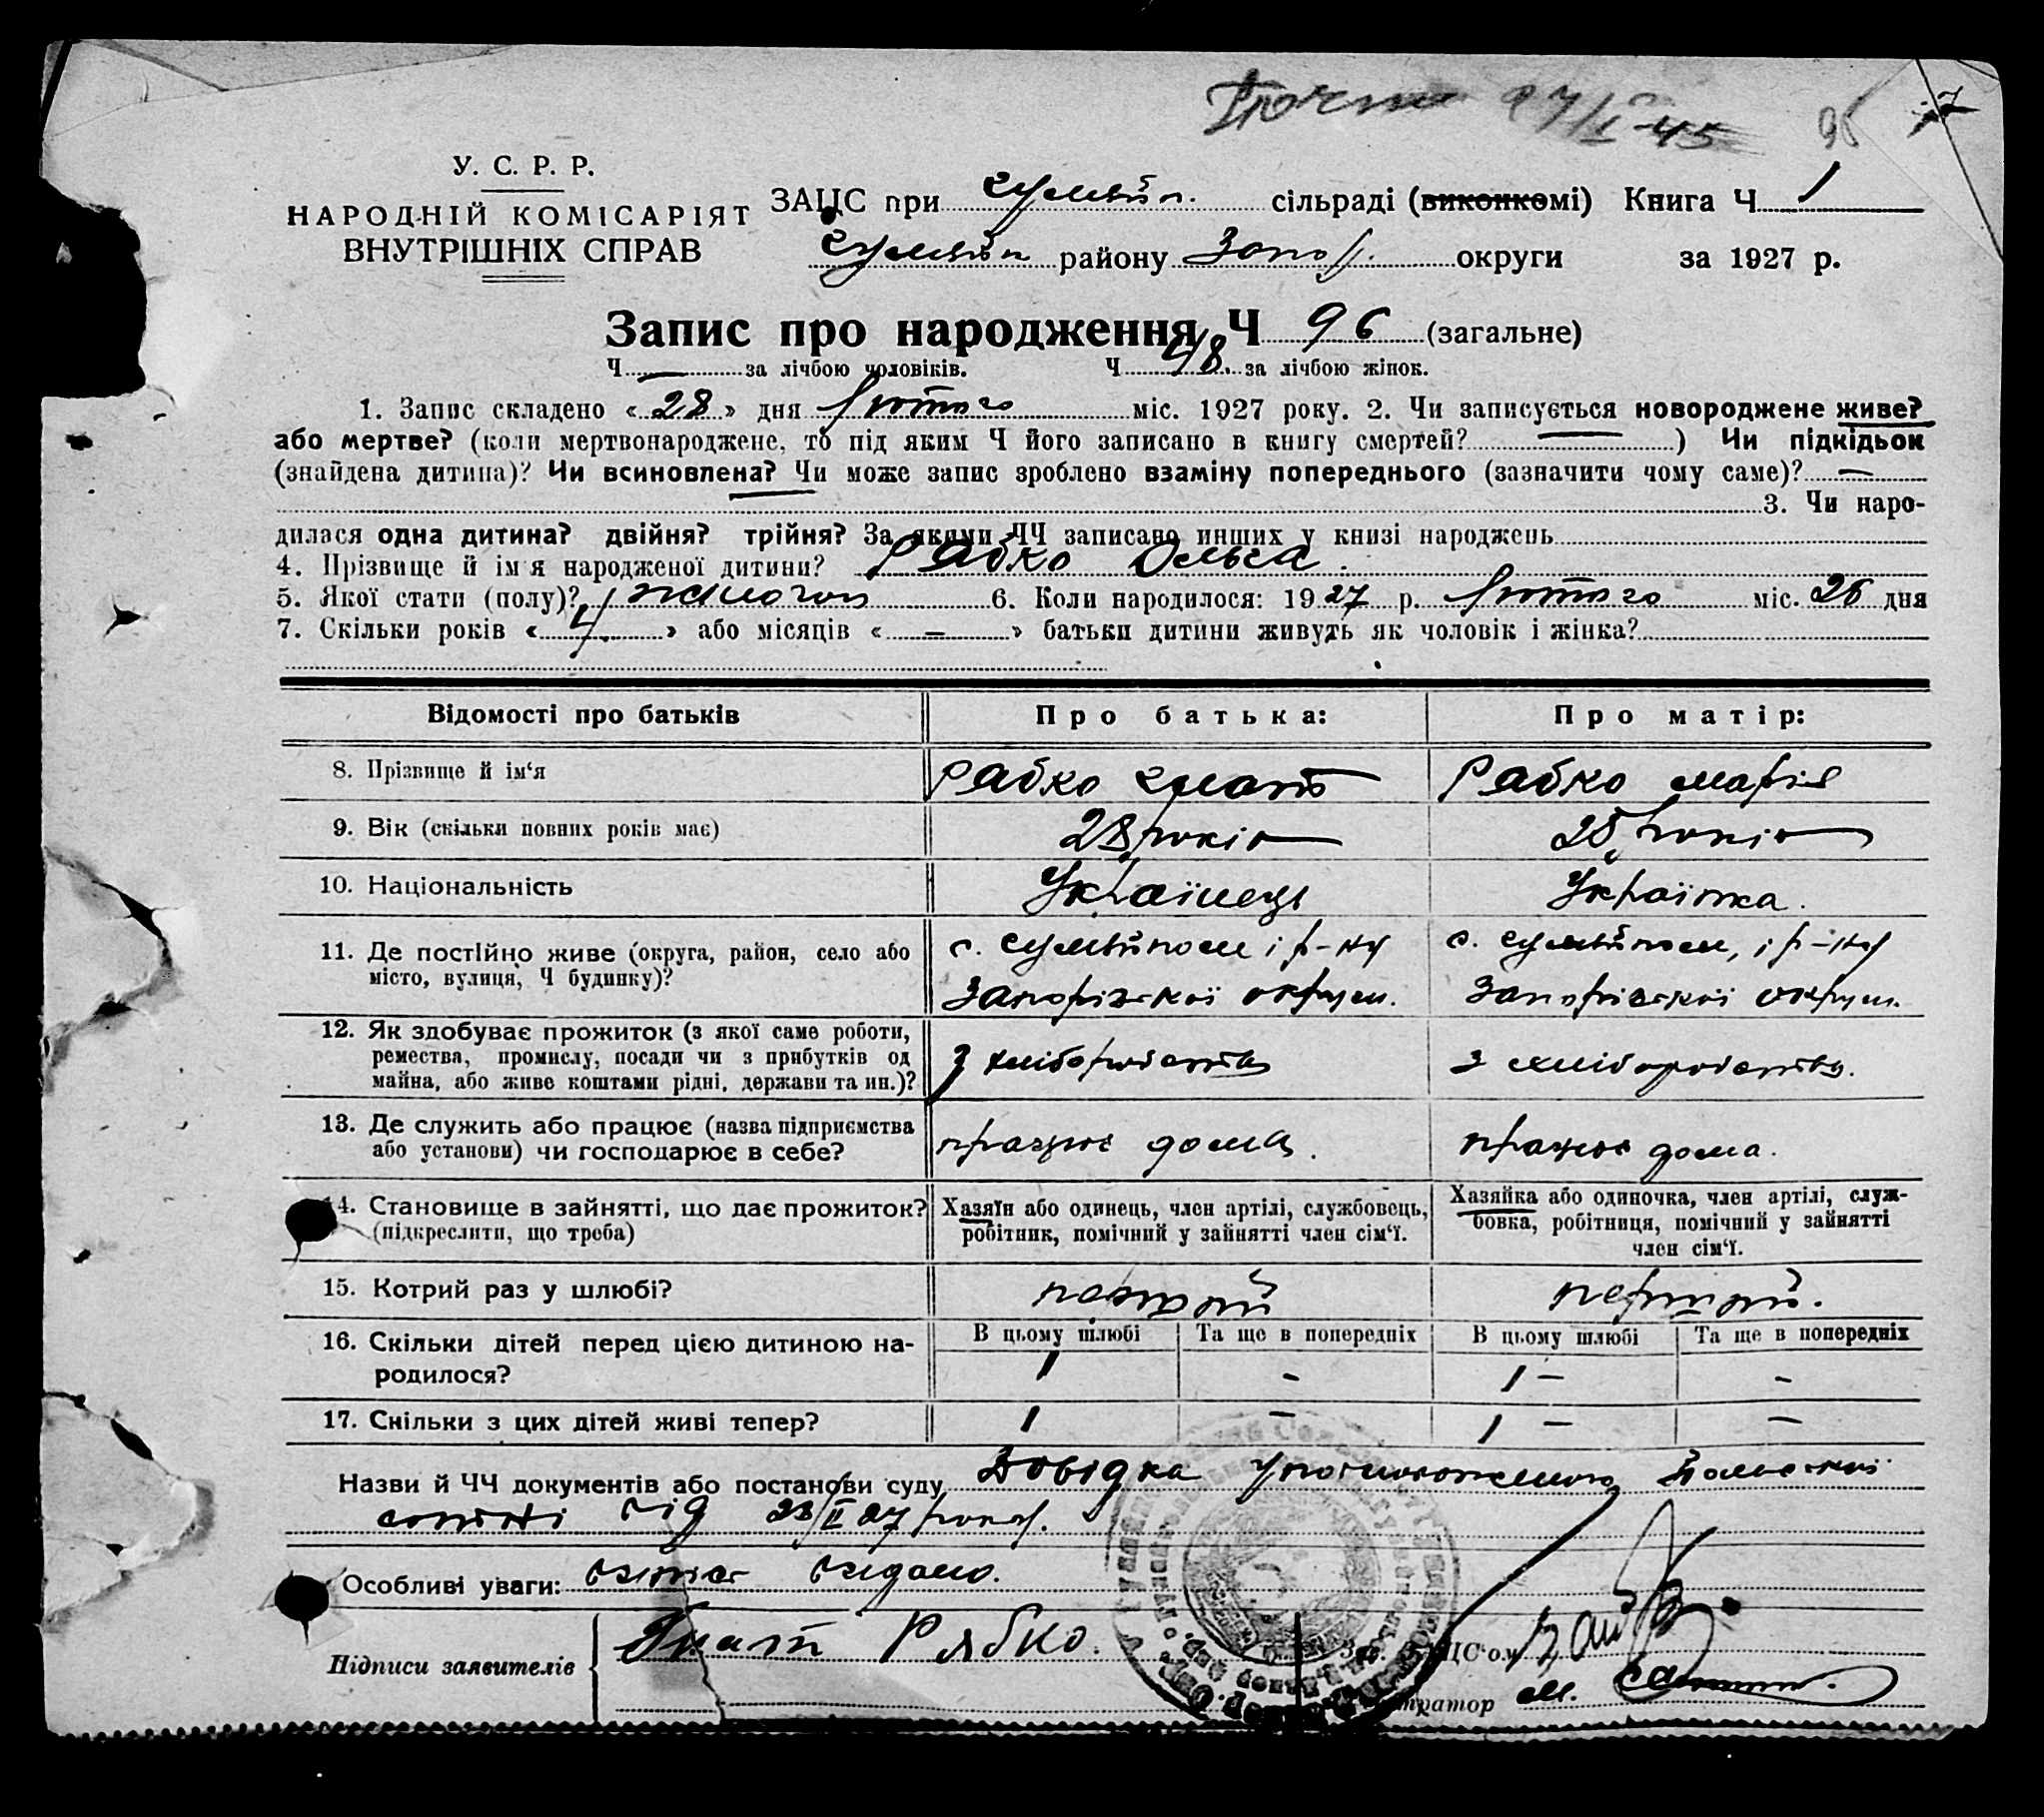 27/I-45
96
У. С. Р. Р.
НАРОДНІЙ КОМІСАРІЯТ
ВНУТРІШНІХ СПРАВ
ЗАЦС при Гуляйп. сільраді (виконкомі) Книга Ч 1
Гуляйп району Запор. округи за 1927 р.
Запис про народження Ч 96 (загальне)
Ч — за лічбою чоловіків. Ч 48. за лічбою жінок.
1. Запис складено «28» дня лютого міс. 1927 року. 2. Чи записується новороджене живе?
або мертве? (коли мертвонароджене, то під яким Ч його записано в книгу смертей? — ) Чи підкідьок
(знайдена дитина)? Чи всиновлена? Чи може запис зроблено взаміну попереднього (зазначити чому саме)? —
3. Чи наро-
дилася одна дитина? двійня? трійня? За якими ЧЧ записано инших у книзі народжень
4. Прізвище й ім'я народженої дитини? Рабко Ольга.
5. Якої стати (полу)? жіночої 6. Коли народилося: 1927 р. лютого міс. 26 дня
7. Скільки років «4» або місяців « — » батьки дитини живуть як чоловік і жінка?
Відомості про батьків Про батька: Про матір:
8. Прізвище й ім'я Рабко Гнат Рабко Марія
9. Вік (скільки повних років має) 28 років 25 років
10. Національність Українець Українка.
11. Де постійно живе (округа, район, село або с. Гуляйполе і р-ну с. Гуляйполе, і р-ну
місто, вулиця, Ч будинку)? Запорізької округи. Запорізької округи.
12. Як здобуває прожиток (з якої саме роботи,
ремества, промислу, посади чи з прибутків од з хліборобства з хліборобства.
майна, або живе коштами рідні, держави та ин.)?
13. Де служить або працює (назва підприємства
або установи) чи господарює в себе? працює дома. працює дома.
14. Становище в зайнятті, що дає прожиток? Хазяїн або одинець, член артілі, службовець, Хазяйка або одиночка, член артілі, служ-
(підкреслити, що треба) робітник, помічний у зайнятті член сім'ї. бовка, робітниця, помічний у зайнятті
член сім'ї.
15. Котрий раз у шлюбі? перший перший.
16. Скільки дітей перед цією дитиною на- В цьому шлюбі Та ще в попередніх В цьому шлюбі Та ще в попередніх
родилося? 1 - 1 - -
17. Скільки з цих дітей живі тепер? 1 - 1 - -
Назви й ЧЧ документів або постанови суду Довідка Уповноваженого Польської
сотні від 23/II 27 року.
Особливі уваги: витяг видано.
Підписи заявителів Гнат Рябко.
Зав. ЗАЦС'ом
М.